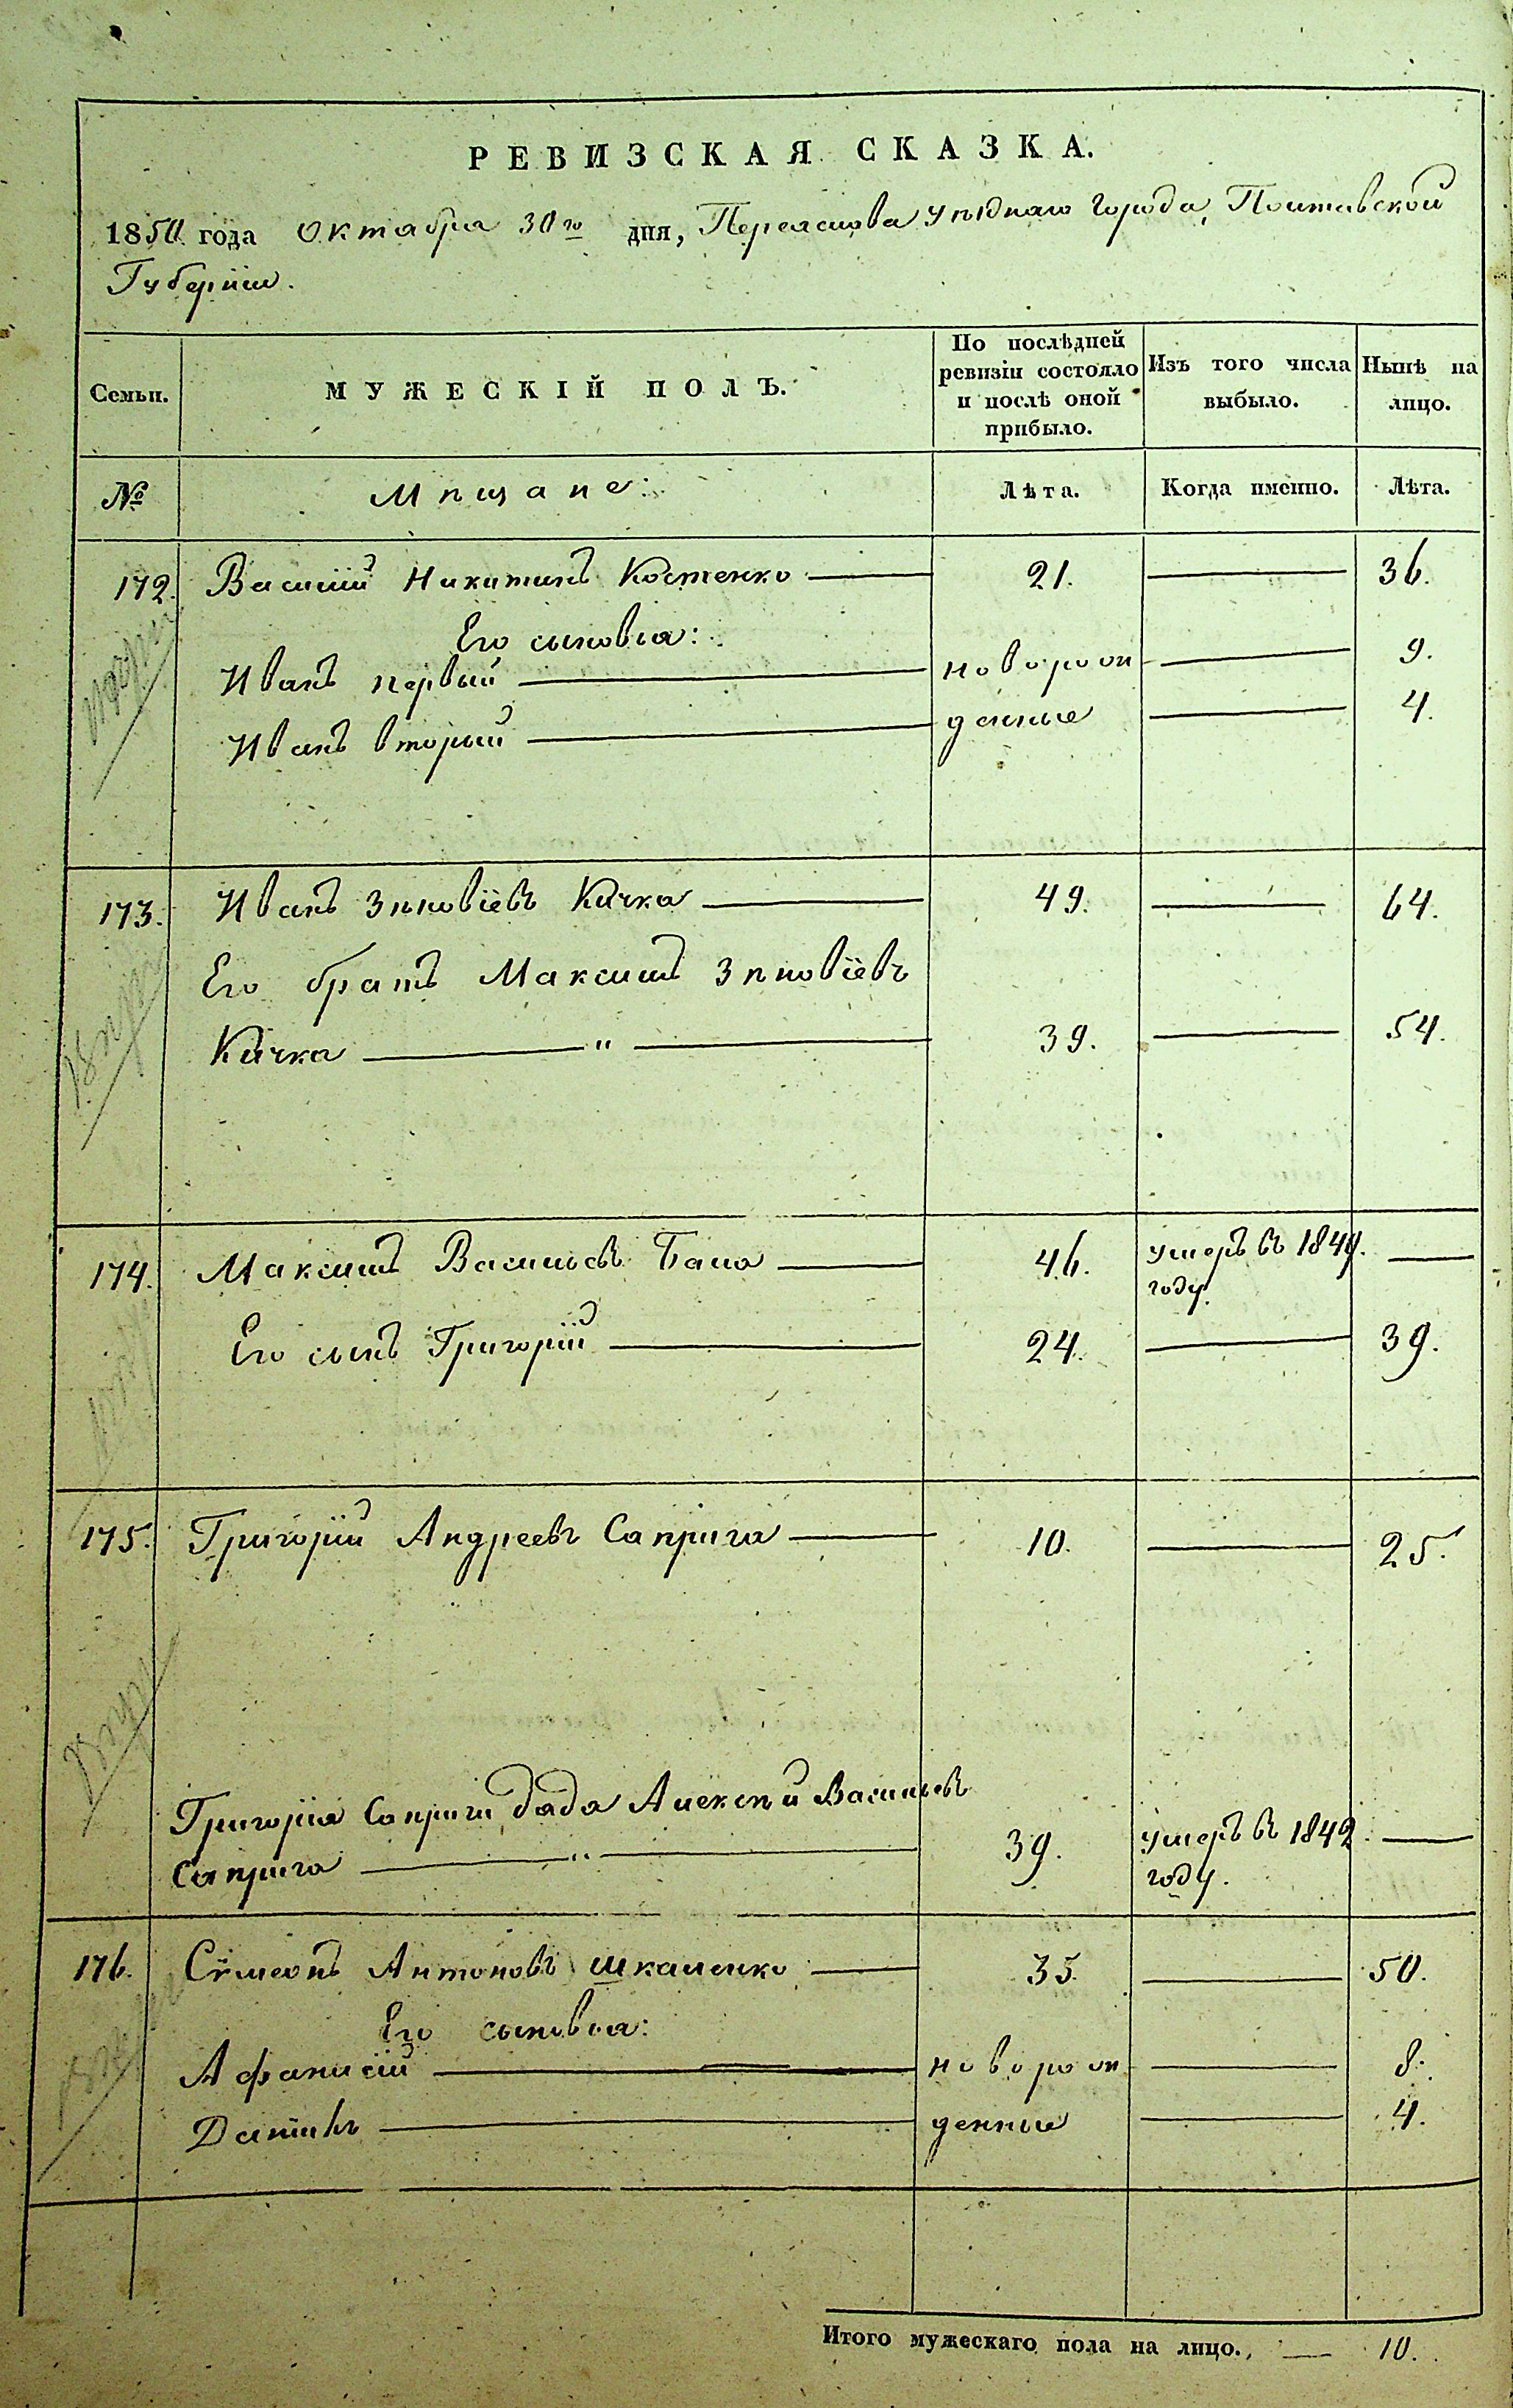 РЕВИЗСКАЯ СКАЗКА.
1850 года Октября 30го дня, Переяслова Уѣзднаго Города, Полтавской
Губерніи.
Семьи.
МУЖЕСКІЙ ПОЛЪ.
По послѣдней ревизіи состояло и послѣ оной прибыло.
Изъ того числа выбыло.
Нынѣ на лицо.
№
Мѣщане:
Лѣта.
Когда именно.
Лѣта.
172. Василій Никитинъ Костенко — 21. — 36.
Его сыновья:
Иванъ первый — новорож — 9.
Иванъ вторый — денные — 4.
173. Иванъ Зѣновіевъ Качка — 49. — 64.
Его братъ Максимъ Зѣновіевъ
Качка — " — 39. — 54.
174. Максимъ Васильевъ — 46. умеръ въ 1849. —
году.
Его сынъ Григорій — 24. — 39.
175. Григорій Андреевъ Саприга — 10. — 25.
Григорія Саприги дядя Алексѣй Васильевъ
Саприга — " — 39. умеръ въ 1842. —
году.
176. Сѵмеонъ Антоновъ Шкаленко — 35. — 50.
Его сыновья:
Афанасій — новорож — 8.
— денные — 4.
Итого мужескаго пола на лицо. — 10.